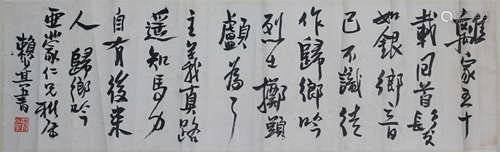 離家五十
載回首鬢
如銀鄉音
已不識徒
作歸鄉吟
烈士擲頭
顱為了
主義真路
遙知馬力
自有後來
人歸鄉吟
亞蒙仁兄雅屬
賴書